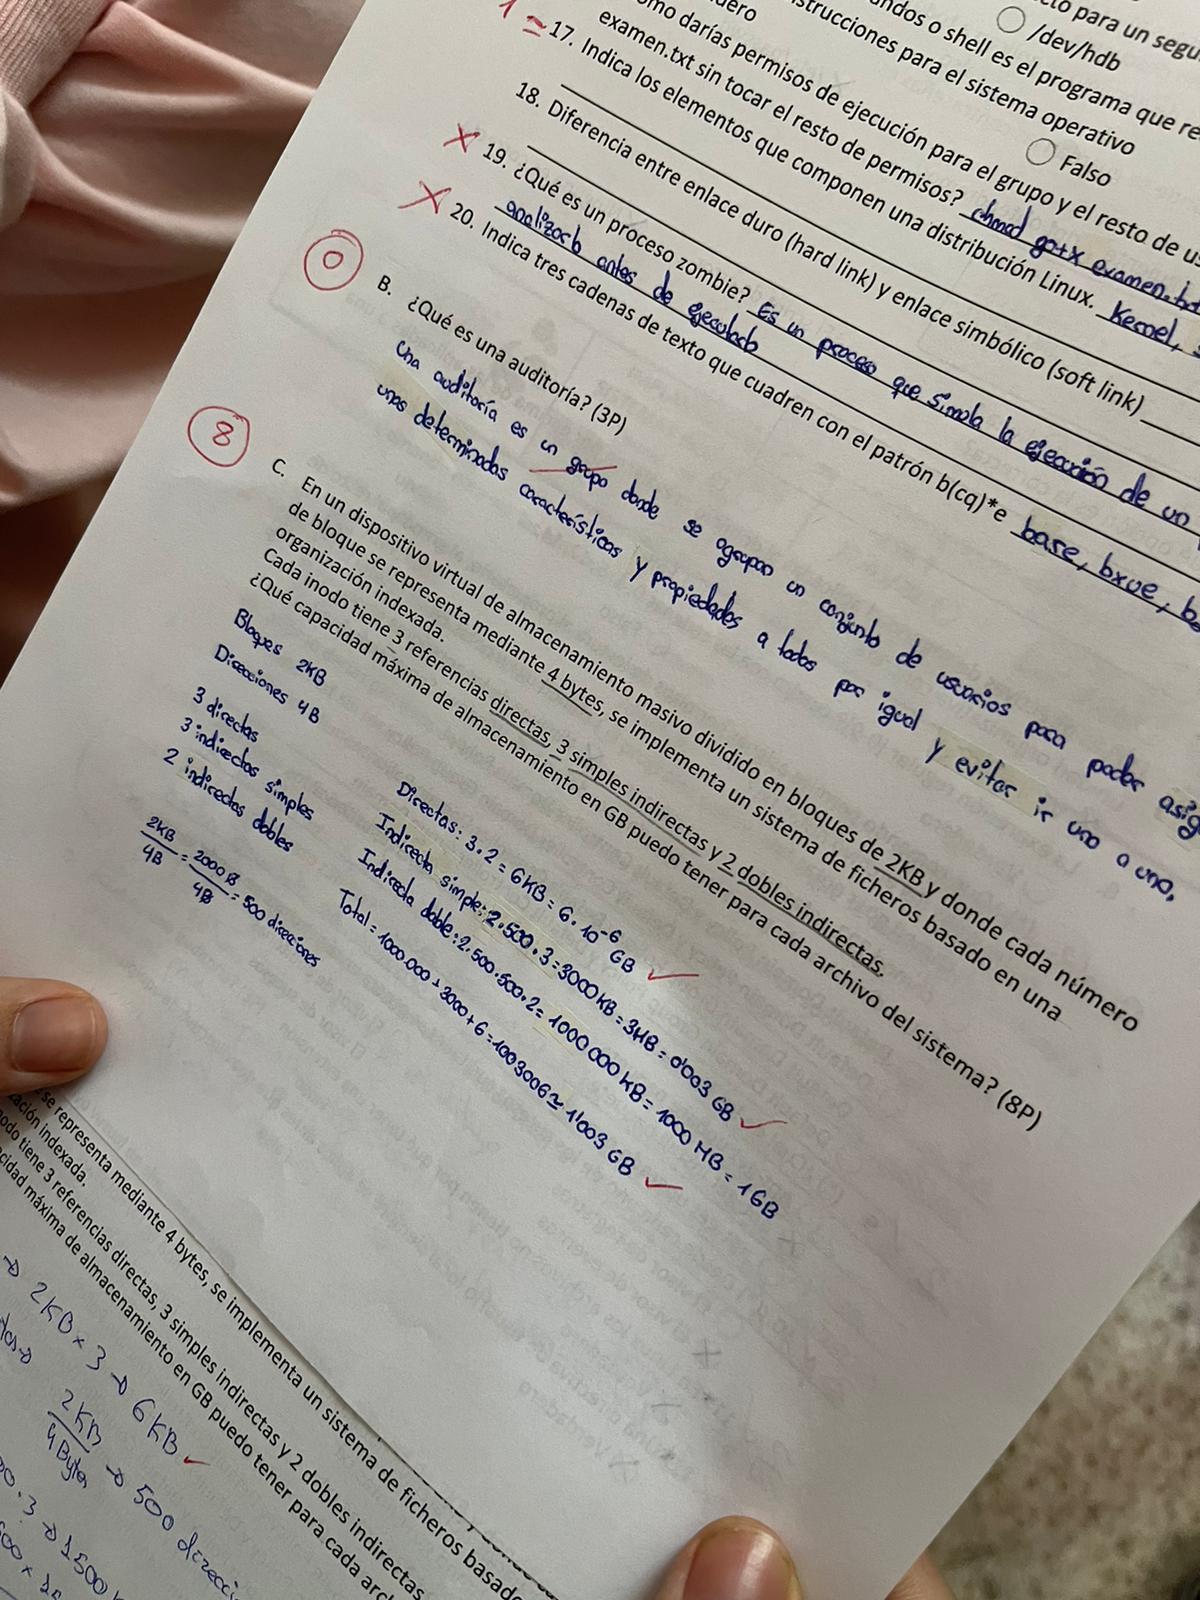 cto para un segu
dero
/dev/hdb
andos o shell es el programa que re
strucciones para el sistema operativo
Falso
omo darías permisos de ejecución para el grupo y el resto de us
examen.txt sin tocar el resto de permisos? chmod go+x examen.txt
1 17. Indica los elementos que componen una distribución Linux. Kernel, s
18. Diferencia entre enlace duro (hard link) y enlace simbólico (soft link)
19. ¿Qué es un proceso zombie? Es un proceso que simula la ejecución de un
analizarlo antes de ejecutarlo
20. Indica tres cadenas de texto que cuadren con el patrón b(cq)*e base, bxve, b
0
B. ¿Qué es una auditoría? (3P)
Una auditoría es un grupo donde se agrupan un conjunto de usuarios para poder asig
unas determinadas características y propiedades a todos por igual y evitar ir uno a uno,
8
C. En un dispositivo virtual de almacenamiento masivo dividido en bloques de 2KB y donde cada número
de bloque se representa mediante 4 bytes, se implementa un sistema de ficheros basado en una
organización indexada.
Cada inodo tiene 3 referencias directas, 3 simples indirectas y 2 dobles indirectas.
¿Qué capacidad máxima de almacenamiento en GB puedo tener para cada archivo del sistema? (8P)
Bloques 2KB
Direcciones 4B
3 directas
3 indirectas simples
2 indirectas dobles
2KB/4B = 2000B/4B = 500 direcciones
Directas: 3·2 = 6KB = 6·10⁻⁶ GB
Indirecta simple: 2·500·3 = 3000KB = 3MB = 0'003 GB
Indirecta doble: 2·500·500·2 = 1000 000 KB = 1000 MB = 1GB
Total = 1000.000 + 3000 + 6 = 1003006 ≃ 1'003 GB
se representa mediante 4 bytes, se implementa un sistema de ficheros basado
ación indexada.
nodo tiene 3 referencias directas, 3 simples indirectas y 2 dobles indirectas
cidad máxima de almacenamiento en GB puedo tener para cada arch
→ 2KB × 3 → 6KB
2KB/4Bytes → 500 direcci
00·3 → 1500 k